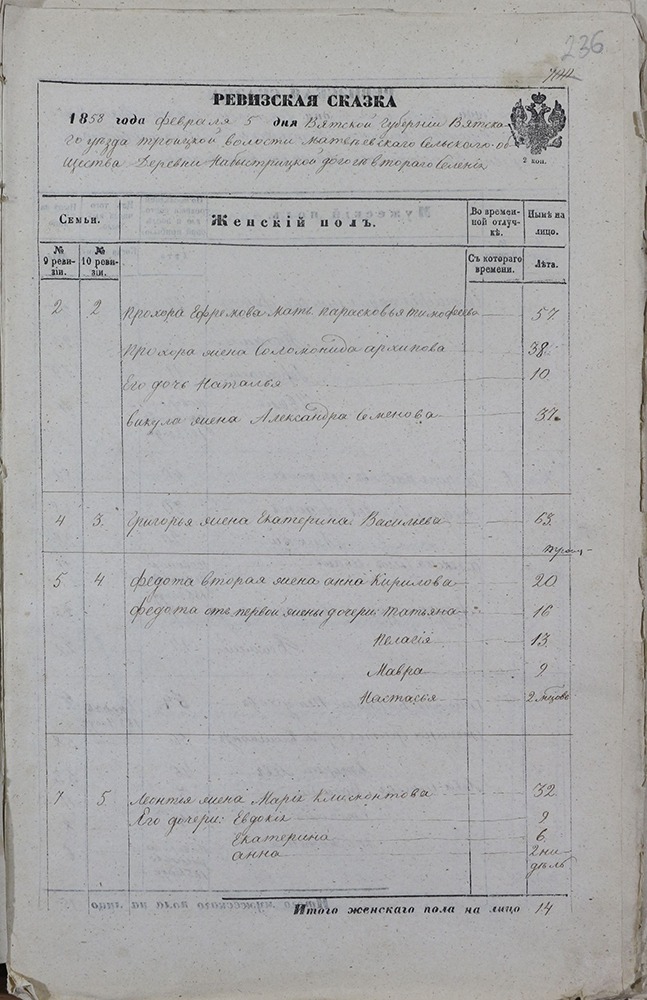 236
РЕВИЗСКАЯ СКАЗКА
1858 года февраля 5 дня Вятской Губернии Вятска-
го уезда троицкой волости Матвеевскаго сельскаго об-
щества Деревни
2 коп.
Семьи.
Женскій полъ.
Во времен-
ной отлуч-
кѣ.
Нынѣ на
лицо.
№
9 реви-
зіи.
№
10 реви-
зіи.
Съ котораго
времени.
Лѣта.
2 2 Прохора Ефремова мать парасковья тимофеева 57
Прохора жена Соломонида архипова 38
Его дочь Наталья 10
викула жена Александра Семенова 37
4 3 Григорья жена Екатерина Васильева 63
5 4 федота вторая жена анна Кирилова 20
федота отъ первой жены дочери: татьяна 16
Пелагія 13
Мавра 9
Настасья 2
7 5 Леонтея жена Марія Климонтова 32
Яго дочери: Евдокія 9
Екатерина 6
анна 2 ни
дѣль
Итого женскаго пола на лицо 14